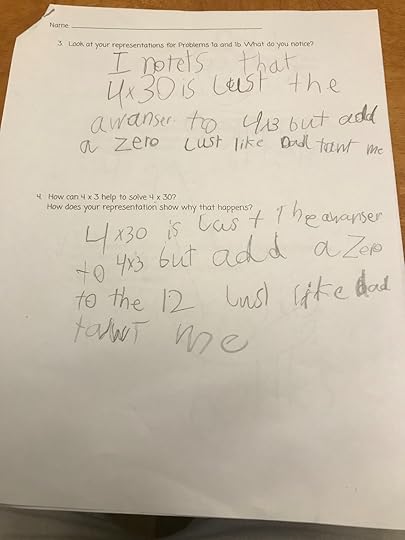 Name
3. Look at your representations for Problems 1a and 1b. What do you notice?
I notets that
4x30 is Lust the
awanser to 4x3 but add
a zero Lust like Dad tawt me
4. How can 4 x 3 help to solve 4 x 30?
How does your representation show why that happens?
4x30 is Lust The awanser
to 4x3 but add a Zero
to the 12 Lust like dad
tawt me